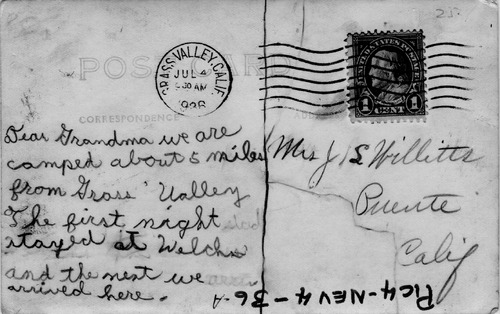 25.
POST CARD
GRASS VALLEY, CALIF.
JUL 4
1926
UNITED STATES POSTAGE
1 CENT 1
CORRESPONDENCE
Dear Grandma we are
camped about 5 miles
from Grass Valley
The first night
stayed at Welchs
and the next we
arrived here.
Mrs J S Willitts
Puente
Calif
PIC4-NEV4-36-A